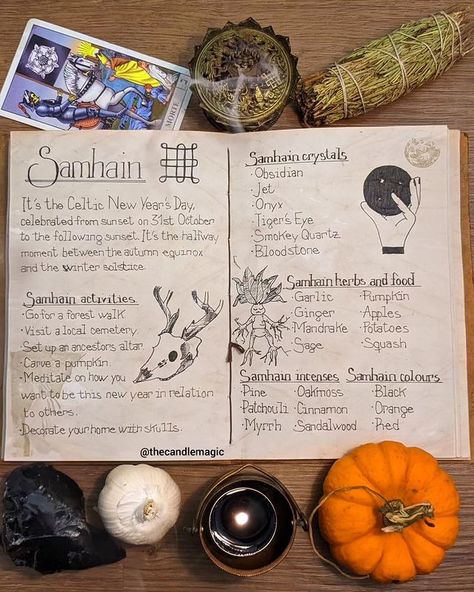 MORTE
Samhain
It's the Celtic New Year's Day,
celebrated from sunset on 31st October
to the following sunset. It's the halfway
moment between the autumn equinox
and the winter solstice.
Samhain activities
·Go for a forest walk
·Visit a local cemetery
·Set up an ancestors altar
·Carve a pumpkin
·Meditate on how you
want to be this new year in relation
to others.
·Decorate your home with skulls.
Samhain crystals
·Obsidian
·Jet
·Onyx
·Tiger's Eye
·Smokey Quartz
·Bloodstone
Samhain herbs and food
·Garlic ·Pumpkin
·Ginger ·Apples
·Mandrake ·Potatoes
·Sage ·Squash
Samhain incenses Samhain colours
·Pine ·Oakmoss ·Black
·Patchouli ·Cinnamon ·Orange
·Myrrh ·Sandalwood ·Red
@thecandlemagic